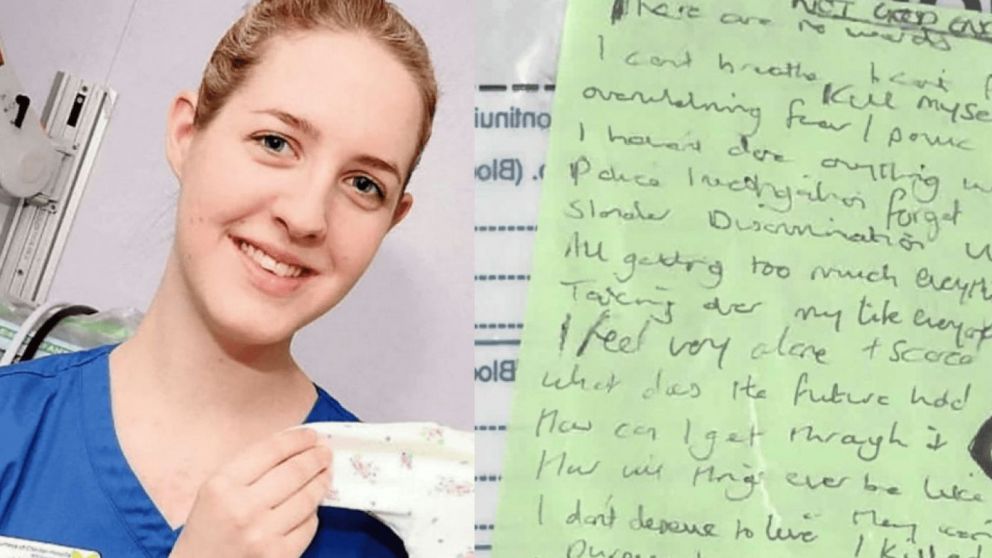 NOT GOOD
There are no words
I cant breathe I cant
Kill myse
overwhelming fear / panic
I havent done anything
Police Investigation forget
Slander Discrimination
All getting too much everyth
Taking over my life
I feel very alone + scared
What does the future hold
How can I get through it
How will things ever be like
I dont deserve to live They
I